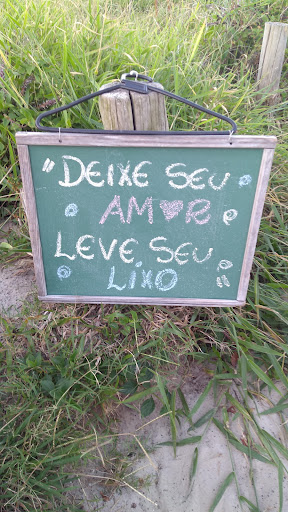 "DEIXE SEU
AM♥R
LEVE SEU
LIXO"